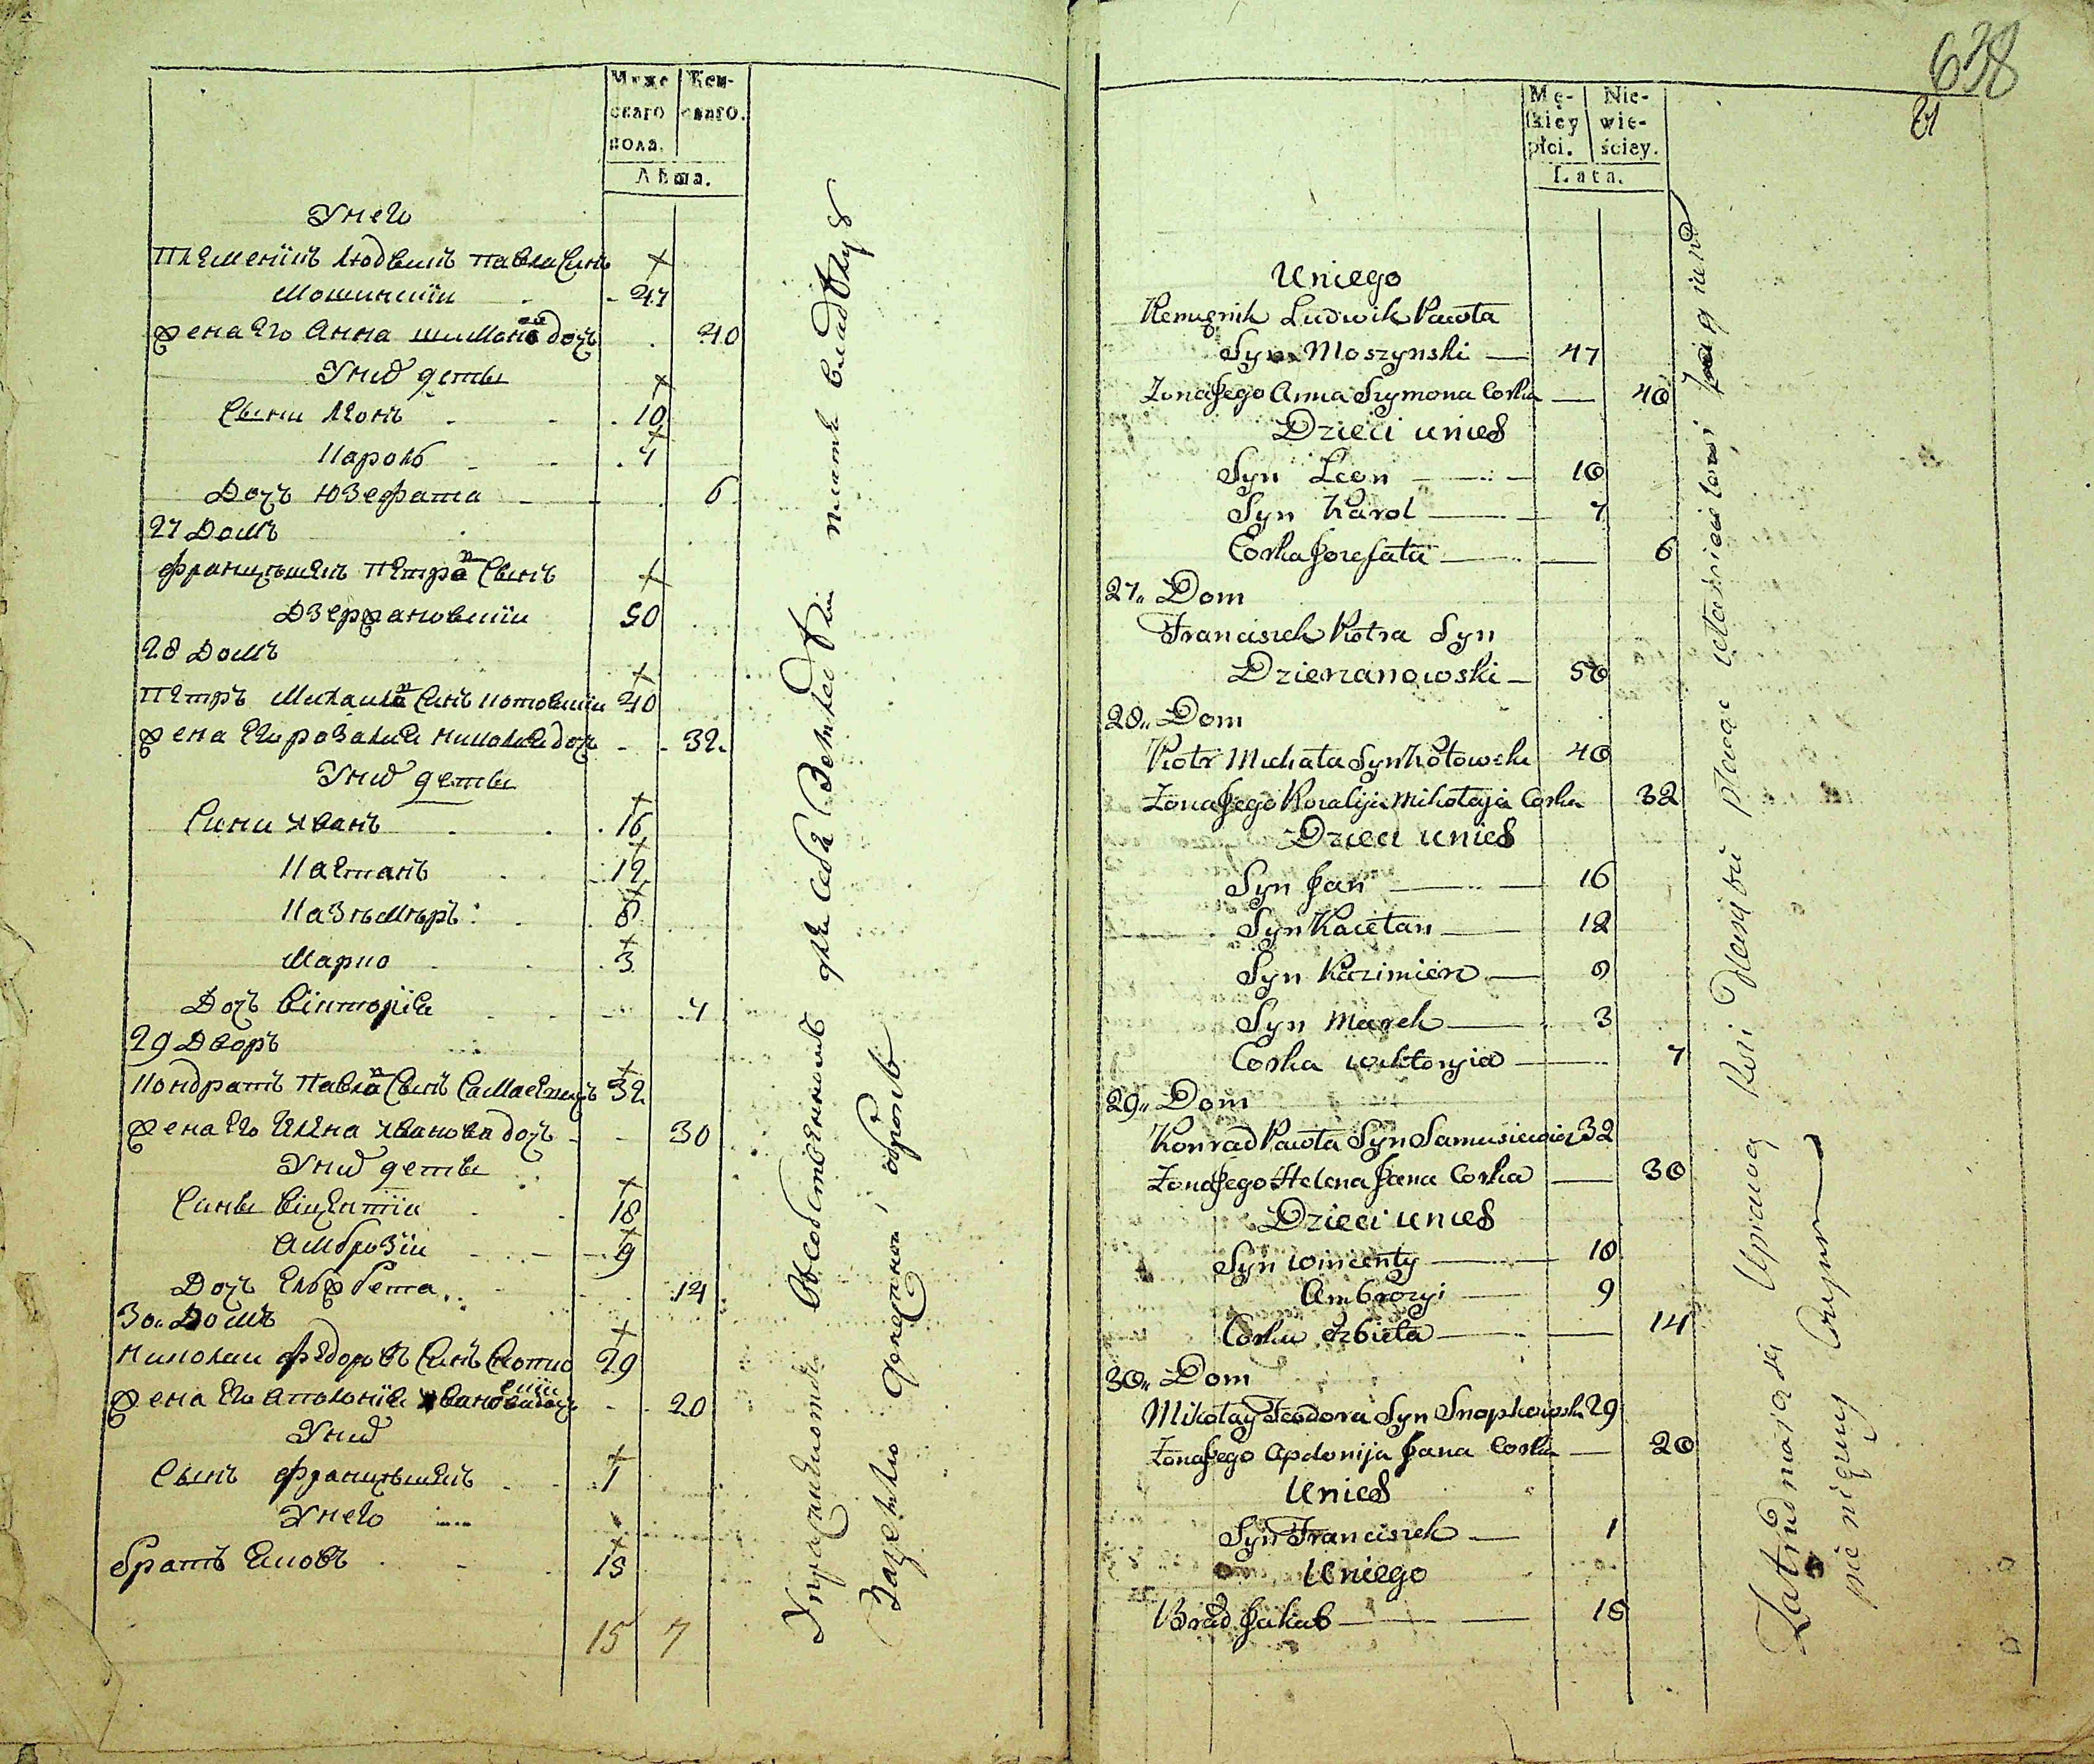 Муже
скаго
пола.
Жен-
скаго.
Лѣта.
У него
племенїкъ Людвикъ Павла Синъ
Мошинскїи 47
жена Его Анна Шимонова дочь 40
У них дети
Сыни Леонъ 10
Кароль 7
Дочь Юзефата 6
27 Домъ
Францишекъ Петра Сынъ
Дзержановскїи 50
28 Домъ
Петръ Михаила Синъ Котовскїи 40
жена Его Розалия Николая дочь 32
У них дети
Сини Иванъ 16
Каетанъ 12
Казимиръ 8
Марко 3
Дочь Вікторїя 7
29 Дворъ
Кондратъ Павла Сынъ Самосевичъ 32
жена Его Елена Иванова дочь 30
У них дети
Сини Віцентїи 18
Амброзїи 9
Дочь Ельжбета 14
30 Домъ
Николаи Федоровъ Синъ Снопко
вскїи 29
жена Его Аполонїя Иванова дочь 20
У них
Сынъ Францишекъ 1
У него
братъ Яковъ 15
15 7
Упражняются обсобственнымъ для себя
платя владельцу
Зачетно денежнои, оброкъ
638
21
Mę-
skiey
płci.
Nie-
wie-
ściey.
Lata.
U niego
Plemięnik Ludwik Pawła
Syn Moszynski 47
Zona Jego Anna Szymona Corka 40
Dzieci u nich
Syn Leon 10
Syn Karol 7
Corka Jozefata 6
27. Dom
Franciszek Piotra Syn
Dzierzanowski 50
28. Dom
Piotr Michała Syn Kotowski 40
Zona Jego Rozalija Mikołaja Corka 32
Dzieci u nich
Syn Jan 16
Syn Kaietan 12
Syn Kazimierz 8
Syn Marek 3
Corka Wiktoryia 7
29. Dom
Konrad Pawła Syn Samusiewicz 32
Zona Jego Helena Jana Corka 30
Dzieci u nich
Syn Wincenty 18
Ambrozyi 9
Corka Elzbieta 14
30. Dom
Mikołay Teodora Syn Snopkowski 29
Zona Jego Apolonija Jana Corka 20
U nich
Syn Franciszek 1
U niego
Brad Jakub 15
Zatrudniaja się Uprawą Roli płacąc właścicielowi
pieniężny Czynsz